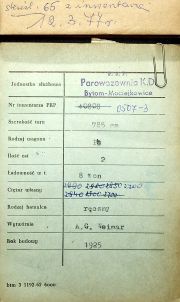 skreśl. 65 z inwentarza
12.3.77r.
Jednostka służbowa
Parowozownia K.D.
Bytom-Maciejkowice
Nr inwentarza PKP 0507-3
Szerokość toru 785 mm
Rodzaj wagonu
Ilość osi 2
Ładowność w t 8 ton
Ciężar własny
Rodzaj hamulca ręczny
Wytwórnia A.G. Weimar
Rok budowy 1925